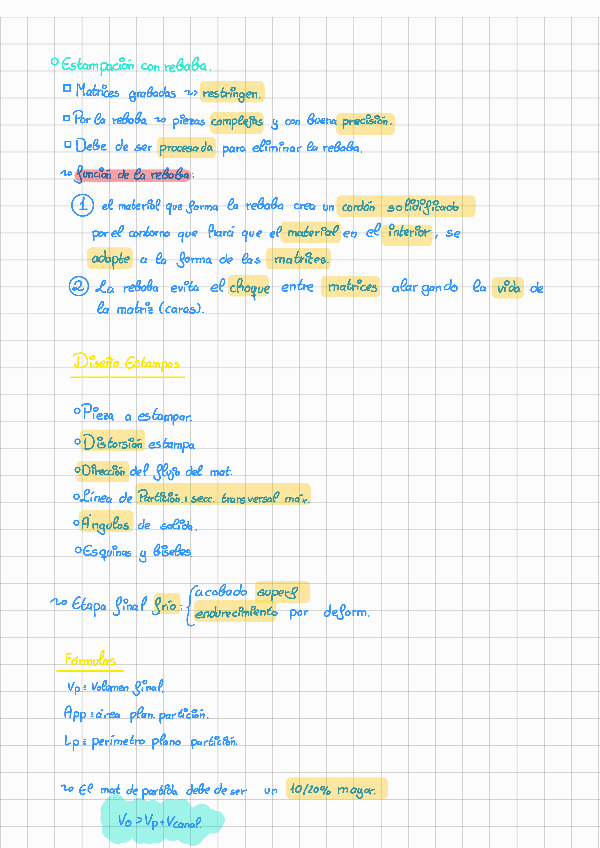 Estampación con rebaba.
Matrices grabadas ~> restringen.
Por la rebaba ~> piezas complejas y con buena precisión.
Debe de ser procesada para eliminar la rebaba.
~> función de la rebaba:
1 el material que forma la rebaba crea un cordón solidificado
por el contorno que hará que el material en el interior, se
adapte a la forma de las matrices.
2 La rebaba evita el choque entre matrices alargando la vida de
la matriz (caras).
Diseño Estampas
Pieza a estampar.
Distorsión estampa
Dirección del flujo del mat.
Línea de Partición: secc. transversal máx.
Ángulos de salida.
Esquinas y biseles
~> Etapa final frío: { acabado superf
endurecimiento por deform.
Fórmulas
Vp = Volumen final.
App = área plan. partición.
Lp = perímetro plano partición.
~> El mat de partida debe de ser un 10/20% mayor.
Vo > Vp + Vcanal.